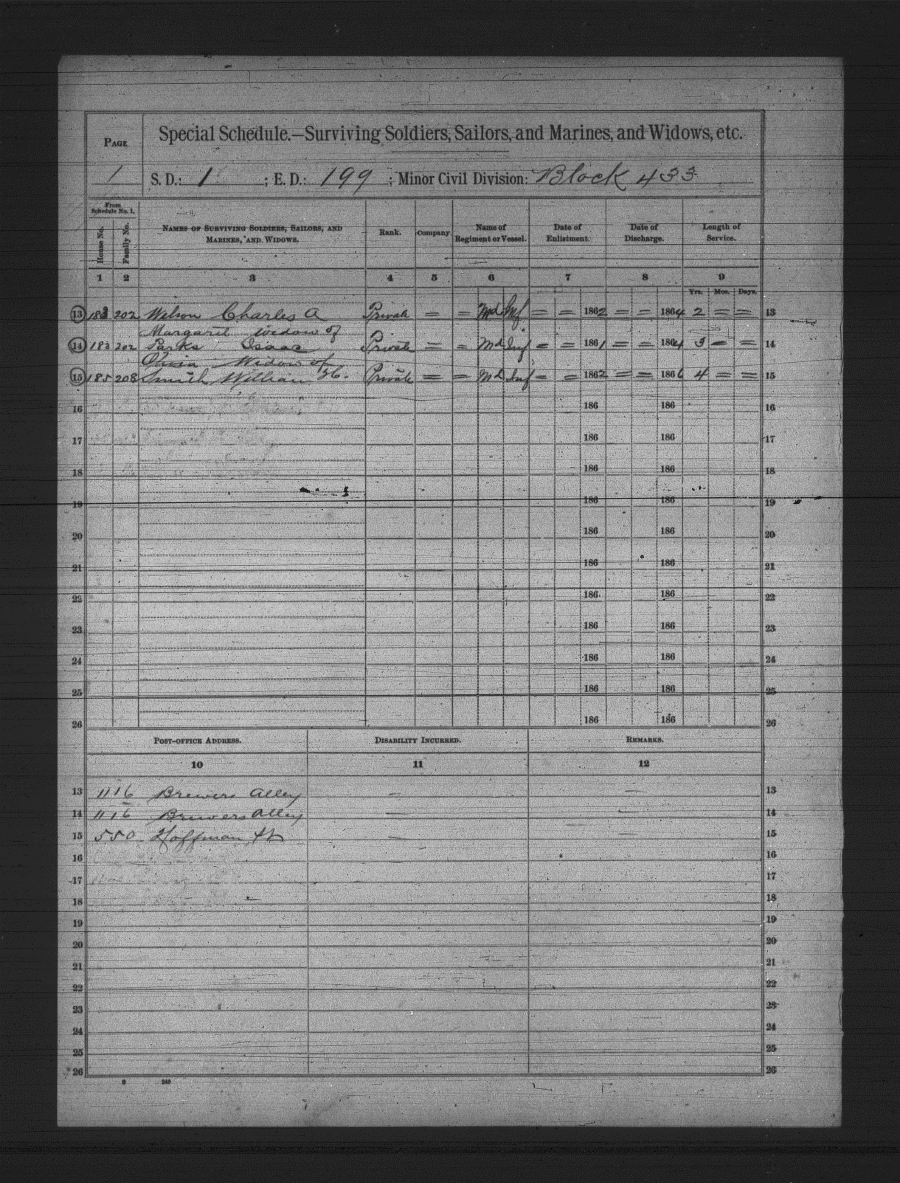 PAGE
1
Special Schedule.—Surviving Soldiers, Sailors, and Marines, and Widows, etc.
S. D.: 1 ; E. D.: 199 ; Minor Civil Division: Block 433
From Schedule No. 1.
House No.
Family No.
NAMES OF SURVIVING SOLDIERS, SAILORS, AND MARINES, AND WIDOWS.
Rank.
Company.
Name of Regiment or Vessel.
Date of Enlistment.
Date of Discharge.
Length of Service.
1 2 3 4 5 6 7 8 9
Yrs. Mos. Days.
13 183 202 Wilson Charles A Private = = Md Inf = = 1862 = = 1864 2 = = 13
Margaret widow of
14 183 202 Parks Isaac Private = = Md Inf = = 1861 = = 1864 3 = = 14
Olivia Widow of
15 185 208 Smith William H. Private = = Md Inf = = 1862 = = 1866 4 = = 15
16 186 186 16
17 186 186 17
18 186 186 18
19 186 186 19
20 186 186 20
21 186 186 21
22 186 186 22
23 186 186 23
24 186 186 24
25 186 186 25
26 186 186 26
POST-OFFICE ADDRESS. DISABILITY INCURRED. REMARKS.
10 11 12
13 1116 Brewers Alley — — 13
14 1116 Brewers Alley — — 14
15 550 Hoffman St — — 15
16 16
17 17
18 18
19 19
20 20
21 21
22 22
23 23
24 24
25 25
26 26